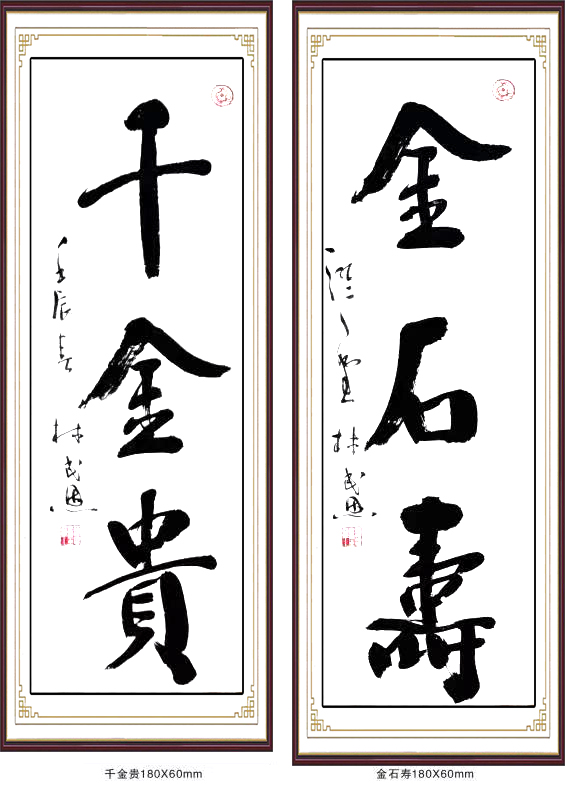 千金貴
壬辰春
林武恩
千金贵180X60mm
金石壽
林武恩
金石寿180X60mm